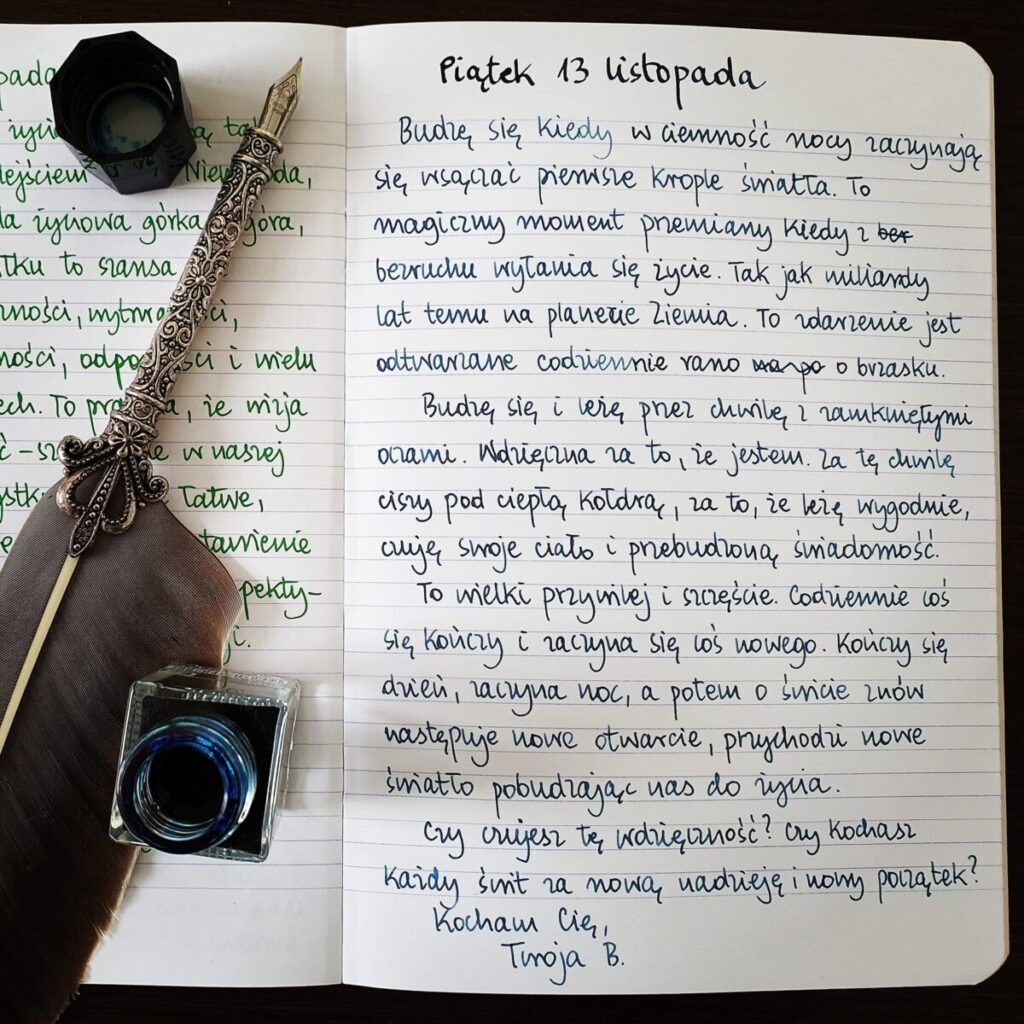 pada
życio ą ta
ejściem Niew da,
a życiowa górka góra,
tku to szansa
ności, wytrwa ci,
ności, odpo ści i wielu
ech. To pra a, że wizja
ć - sz e w naszej
ystk łatwe,
e tawienie
pekty-
ji.
Piątek 13 listopada
Budzę się kiedy w ciemność nocy zaczynają
się wsączać pierwsze krople światła. To
magiczny moment przemiany kiedy z ber
bezruchu wyłania się życie. Tak jak miliardy
lat temu na planecie Ziemia. To zdarzenie jest
odtwarzane codziennie rano o brzasku.
Budzę się i leżę przez chwilę z zamkniętymi
oczami. Wdzięczna za to, że jestem. Za tę chwilę
ciszy pod ciepłą kołdrą, za to, że leżę wygodnie,
czuję swoje ciało i przebudzoną świadomość.
To wielki przywilej i szczęście. Codziennie coś
się kończy i zaczyna się coś nowego. Kończy się
dzień, zaczyna noc, a potem o świcie znów
następuje nowe otwarcie, przychodzi nowe
światło pobudzając nas do życia.
Czy czujesz tę wdzięczność? Czy kochasz
każdy świt za nową nadzieję i nowy początek?
Kocham Cię,
Twoja B.